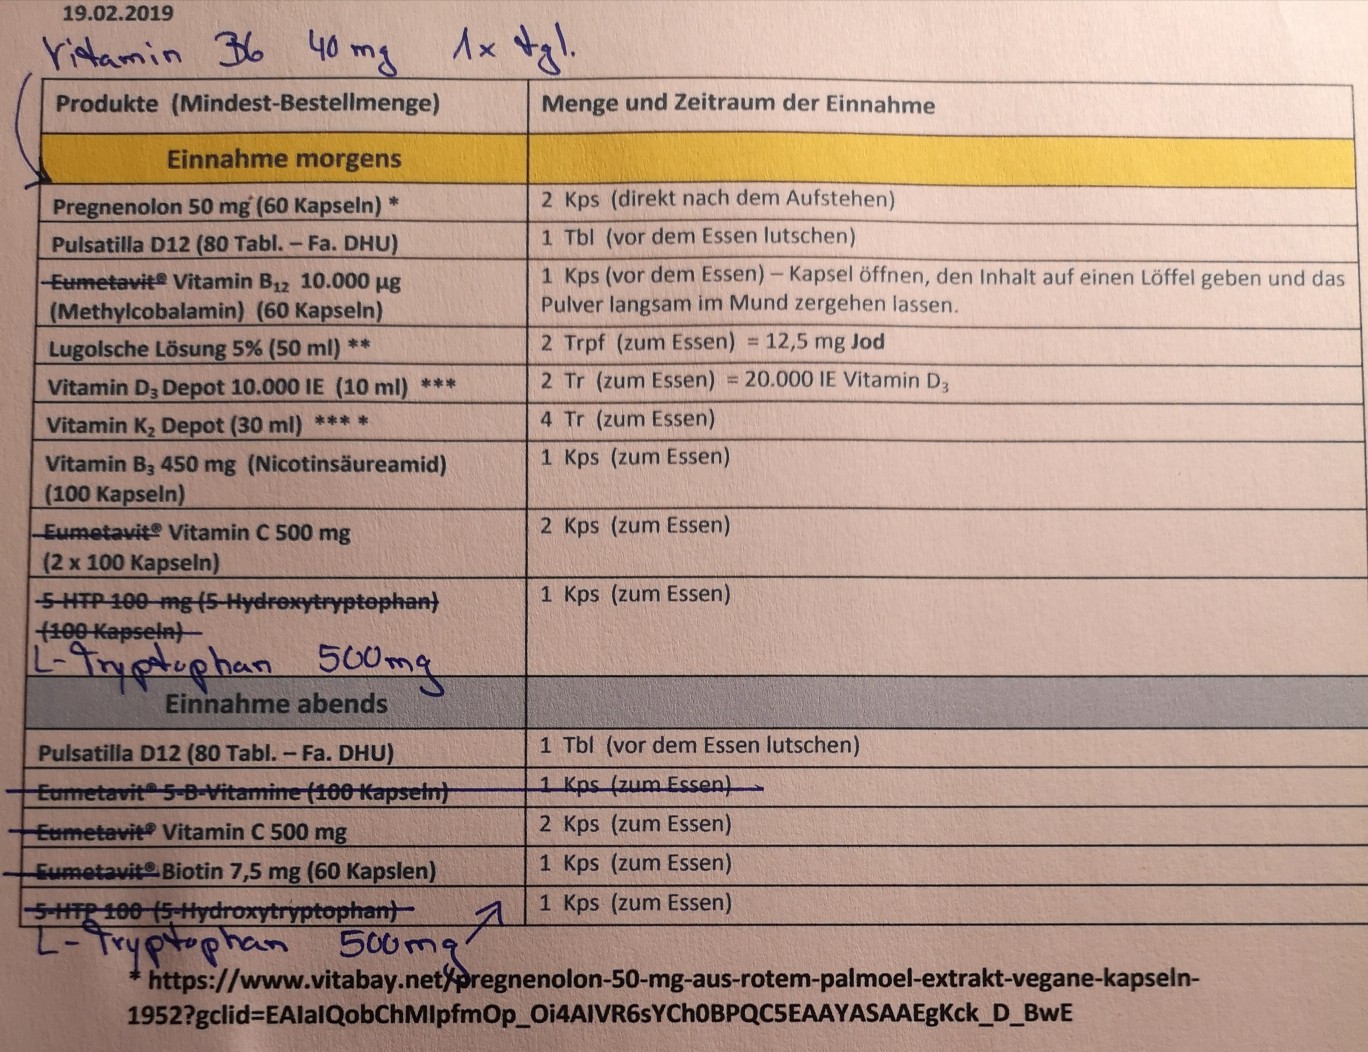 19.02.2019
Vitamin B6 40 mg 1x tgl.
Produkte (Mindest-Bestellmenge) Menge und Zeitraum der Einnahme
Einnahme morgens
Pregnenolon 50 mg (60 Kapseln) * 2 Kps (direkt nach dem Aufstehen)
Pulsatilla D12 (80 Tabl. – Fa. DHU) 1 Tbl (vor dem Essen lutschen)
Eumetavit® Vitamin B12 10.000 µg 1 Kps (vor dem Essen) – Kapsel öffnen, den Inhalt auf einen Löffel geben und das
(Methylcobalamin) (60 Kapseln) Pulver langsam im Mund zergehen lassen.
Lugolsche Lösung 5% (50 ml) ** 2 Trpf (zum Essen) = 12,5 mg Jod
Vitamin D3 Depot 10.000 IE (10 ml) *** 2 Tr (zum Essen) = 20.000 IE Vitamin D3
Vitamin K2 Depot (30 ml) *** * 4 Tr (zum Essen)
Vitamin B3 450 mg (Nicotinsäureamid) 1 Kps (zum Essen)
(100 Kapseln)
Eumetavit® Vitamin C 500 mg 2 Kps (zum Essen)
(2 x 100 Kapseln)
5-HTP 100 mg (5-Hydroxytryptophan) 1 Kps (zum Essen)
(100 Kapseln)
L-Tryptophan 500mg
Einnahme abends
Pulsatilla D12 (80 Tabl. – Fa. DHU) 1 Tbl (vor dem Essen lutschen)
Eumetavit® 5-B-Vitamine (100 Kapseln) 1 Kps (zum Essen)
Eumetavit® Vitamin C 500 mg 2 Kps (zum Essen)
Eumetavit® Biotin 7,5 mg (60 Kapslen) 1 Kps (zum Essen)
5-HTP 100 (5-Hydroxytryptophan) 1 Kps (zum Essen)
L-Tryptophan 500mg
* https://www.vitabay.net/pregnenolon-50-mg-aus-rotem-palmoel-extrakt-vegane-kapseln-
1952?gclid=EAIaIQobChMIpfmOp_Oi4AIVR6sYCh0BPQC5EAAYASAAEgKck_D_BwE